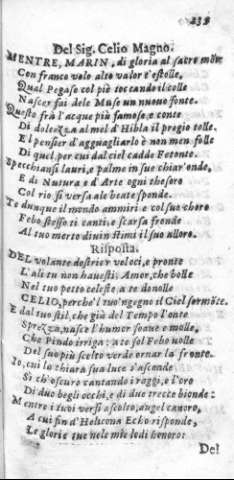 239
Del Sig. Celio Magno.
MENTRE, MARIN, di gloria al sacro môte
Con franco volo alto valor t'estolle,
Qual Pegaso col piè toccando il colle
Nascer fai dele Muse un nuovo fonte.
Questo frà l'acque più famose, e conte
Di dolcezza al mel d'Hibla il pregio tolle.
E'l pensier d'agguagliarlo è non men folle
Di quel, per cui dal ciel cadde Fetonte.
Specchiansi lauri, e palme in sue chiar'onde,
E di Natura e d'Arte ogni thesoro
Col rio si versa ale beate sponde.
Te dunque il mondo ammiri e col suo choro
Febo stesso ti canti: e scarsa fronde
Al tuo merto divin stimi il suo alloro.
Risposta.
DEL volante destrier veloci, e pronte
L'ali tu non havesti: Amor, che bolle
Nel tuo petto celeste, a te donolle
CELIO, perche'l tuo'ngegno il Ciel sormôte.
E dal tuo stil, che già del Tempo l'onte
Sprezza, nasce l'humor soave e molle,
Che Pindo irriga: a te sol Febo volle
Del suo più scelto verde ornar la fronte.
Io, cui la chiara sua luce s'asconde
Si ch'oscuro cantando i raggi, e l'oro
Di duo begli occhi, e di due trecce bionde:
Mentre i tuoi versi ascolto, angel canoro,
A cui fin d'Helicona Echo risponde,
Le glorie tue nele mie lodi honoro:
Del